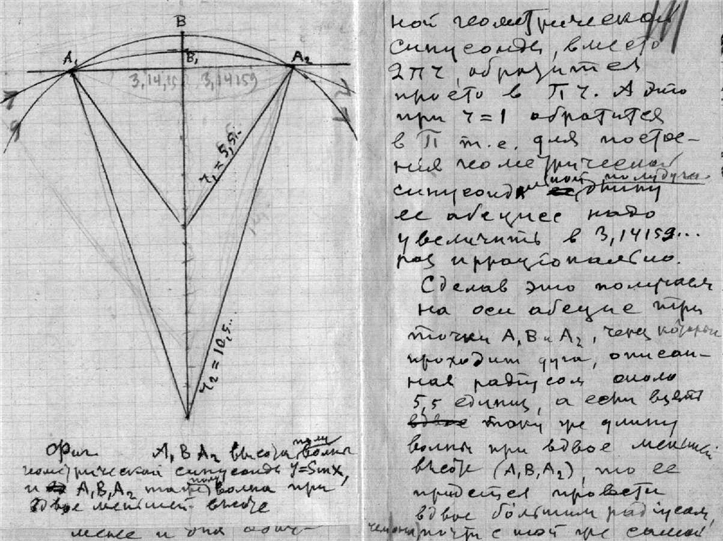 B
A₁ B₁ A₂
3,14,15 3,14159
r₁ = 5,5..
r₂ = 10,5..
A₁ B A₂ высота полу волны
геометрической синусоиды y=Sinx,
и A₁B₁A₂ та же полу волна при
вдвое меньшей высоте
ной геометрической
синусоиды, вместо
2πr, обратится
просто в πr. А это
при r=1 обратится
в π т.е. для построе-
ния геометрической
синусоиды длину
ее абсцисс надо
увеличить в 3,14159...
раз иррационально.
Сделав это получаем
на оси абсцисс три
точки A₁B и A₂, через которые
проходит дуга, описан-
ная радиусом около
5,5 единиц, а если взять
такую же длину
волны при вдвое меньшей
высоте (A₁B₁A₂), то ее
придется провести
вдвое большим радиусом,
почти с той же самой